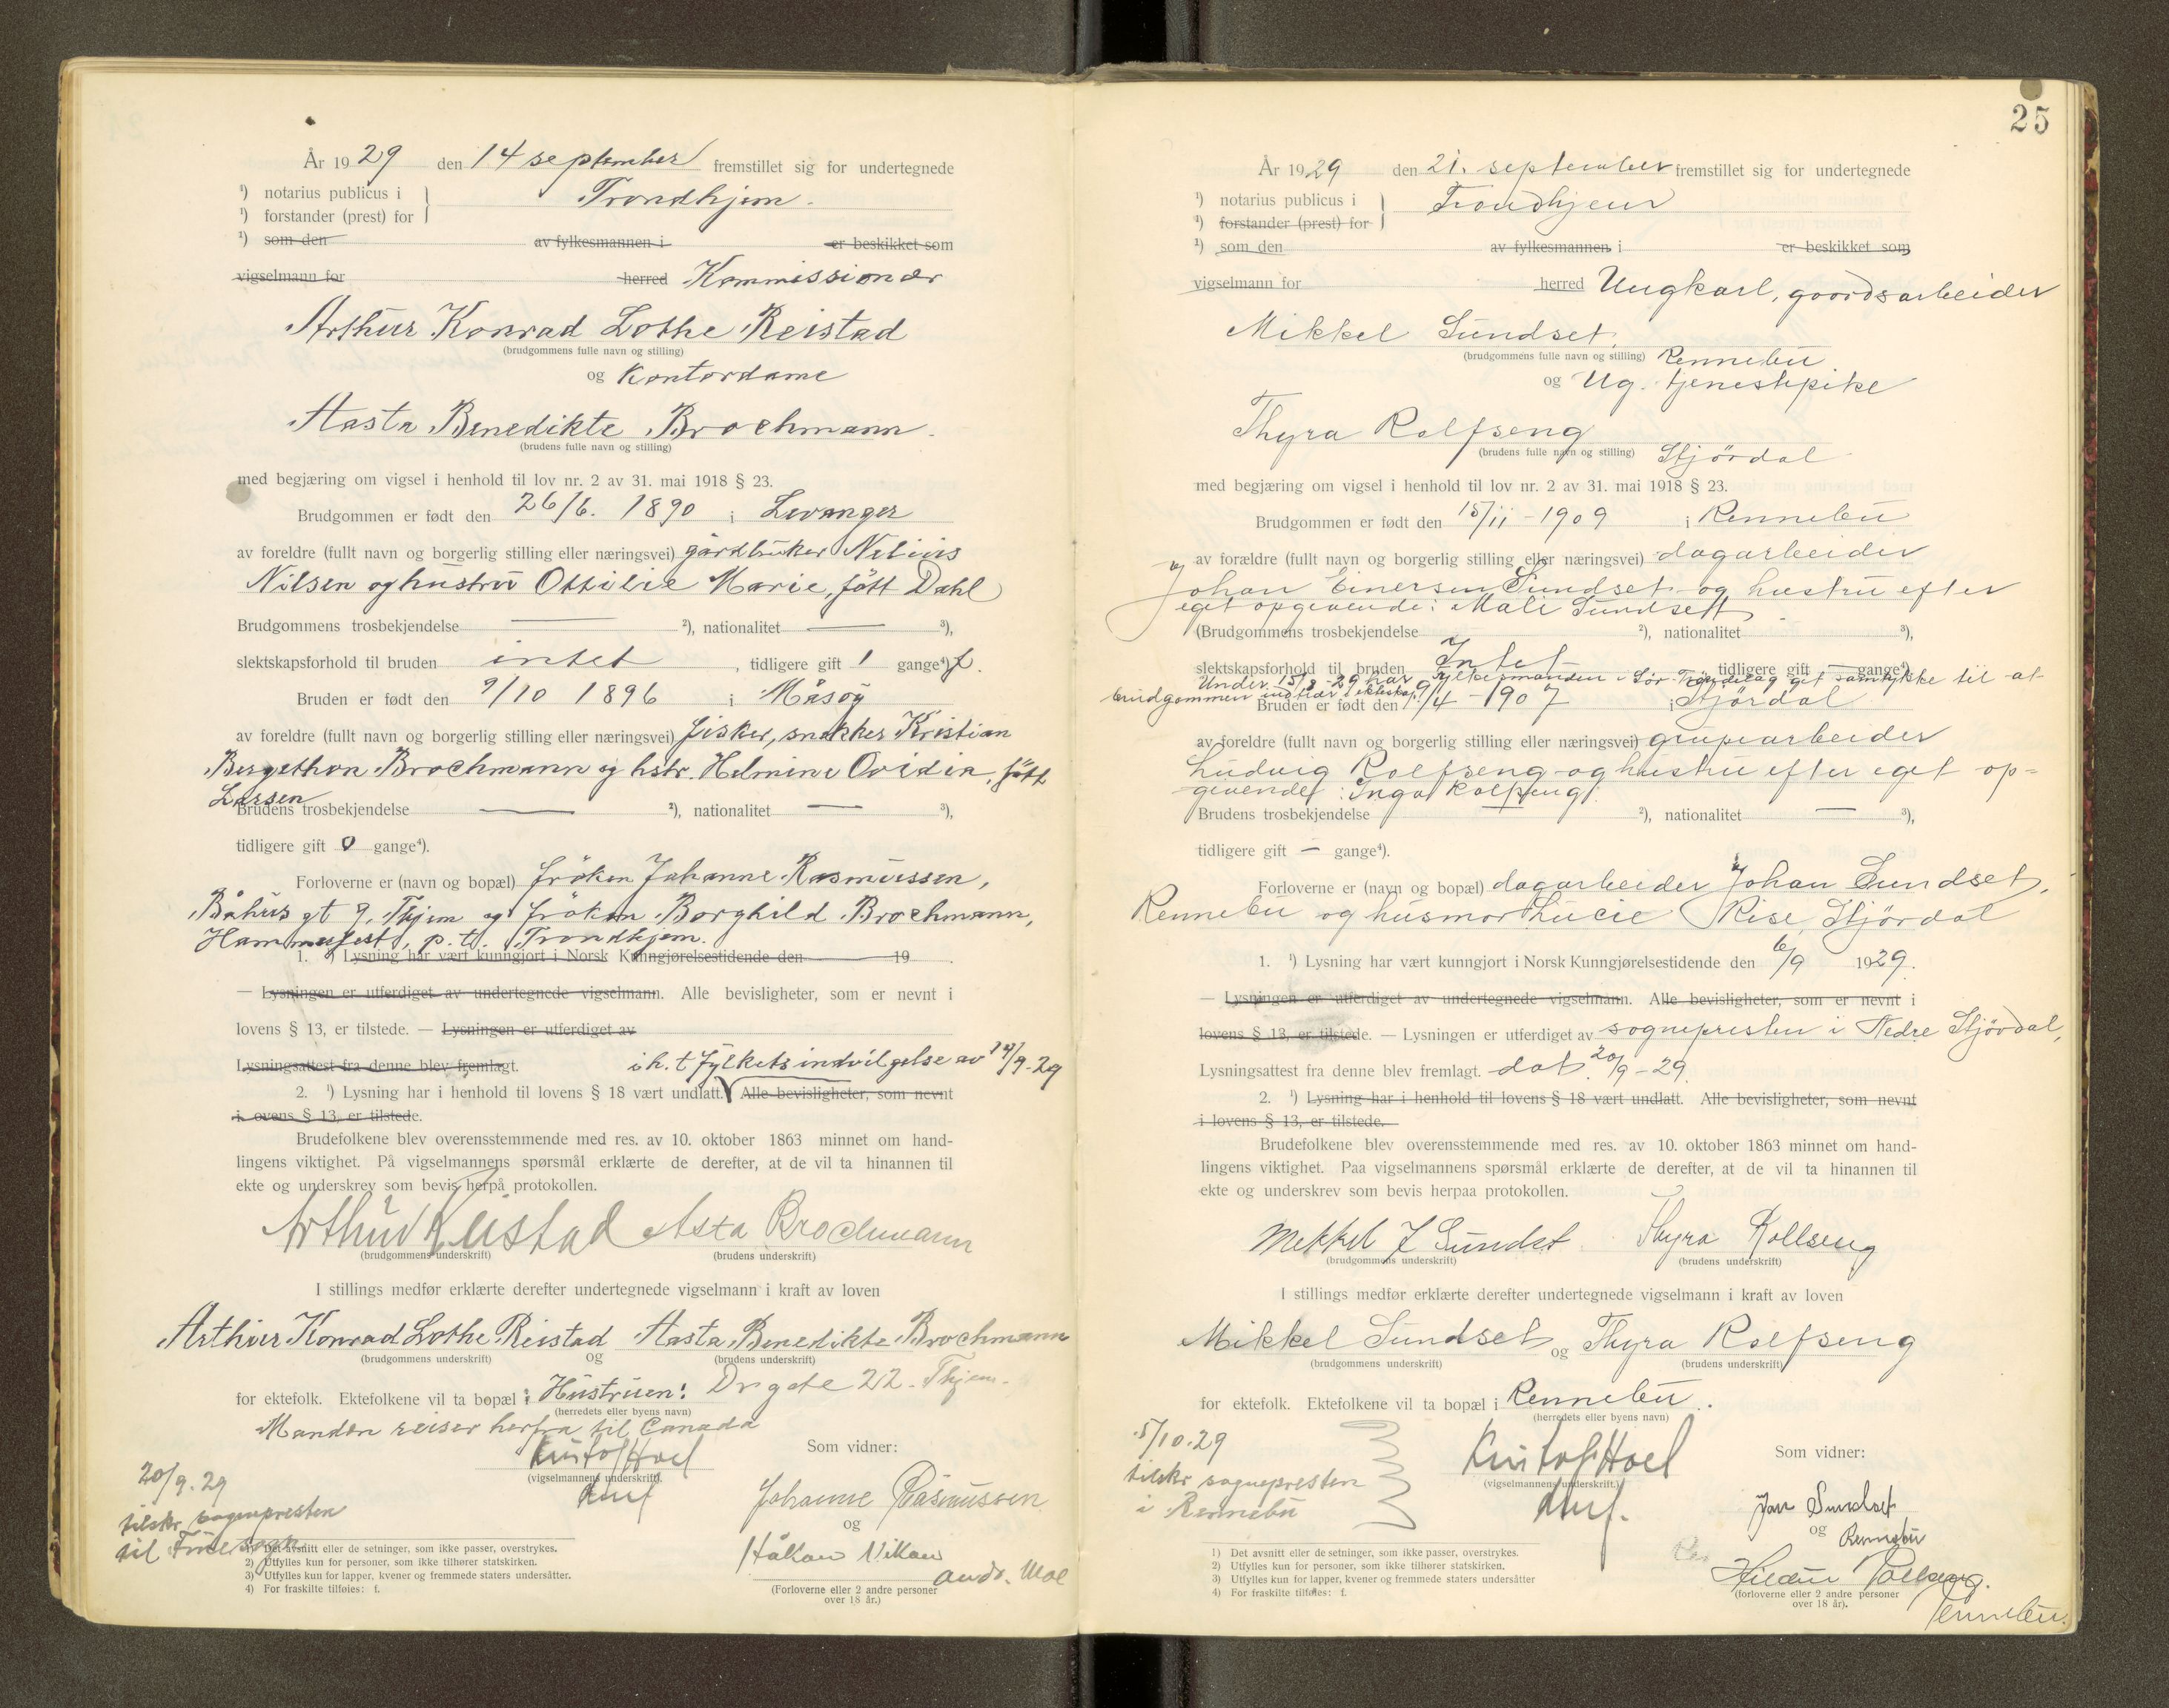 År 1929 den 14 september fremstillet sig for undertegnede
¹) notarius publicus i
Trondhjem.
¹) forstander (prest) for
¹) som den av fylkesmannen i er beskikket som
vigselmann for herred Kommissionær
Arthur Konrad Lothe Reistad
(brudgommens fulle navn og stilling)
og Kontordame
Aasta Benedikte Brochmann.
(brudens fulle navn og stilling)
med begjæring om vigsel i henhold til lov nr. 2 av 31. mai 1918 § 23.
Brudgommen er født den 26/6. 1890 i Levanger
av foreldre (fullt navn og borgerlig stilling eller næringsvei) gårdbruker Nelius
Nilsen og hustru Ottilie Marie, født Dahl
Brudgommens trosbekjendelse — ²), nationalitet — ³),
slektskapsforhold til bruden intet, tidligere gift 1 gange⁴) f.
Bruden er født den 9/10 1896 i Måsøy
av foreldre (fullt navn og borgerlig stilling eller næringsvei) fisker, snekker Kristian
Bergethon Brochmann og hstr. Helmine Ovidia, født
Larsen
Brudens trosbekjendelse — ²), nationalitet — ³),
tidligere gift 0 gange⁴).
Forloverne er (navn og bopæl) frøken Johanne Rasmussen,
Båhus gt 9. Thjem og frøken Borghild Brochmann,
Hammerfest, p.t. Trondhjem.
1. ¹) Lysning har vært kunngjort i Norsk Kunngjørelsestidende den 19 .
— Lysningen er utferdiget av undertegnede vigselmann. Alle bevisligheter, som er nevnt i
lovens § 13, er tilstede. — Lysningen er utferdiget av
Lysningsattest fra denne blev fremlagt. i h. t fylkets indvilgelse av 14/9-29
2. ¹) Lysning har i henhold til lovens § 18 vært undlatt. Alle bevisligheter, som nevnt
i ovens § 13, er tilstede.
Brudefolkene blev overensstemmende med res. av 10. oktober 1863 minnet om hand-
lingens viktighet. På vigselmannens spørsmål erklærte de derefter, at de vil ta hinannen til
ekte og underskrev som bevis herpå protokollen.
Arthur Reistad Asta Brochmann
(brudgommens underskrift) (brudens underskrift)
I stillings medfør erklærte derefter undertegnede vigselmann i kraft av loven
Arthur Konrad Lothe Reistad og Aasta Benedikte Brochmann
(brudgommens underskrift) (brudens underskrift)
for ektefolk. Ektefolkene vil ta bopæl i Hustruen: Drgate 22. Thjem.
(herredets eller byens navn)
Manden reiser herfra til Canada
Kristof Hoel
(vigselmannens underskrift).
Som vidner:
Johanne Rasmussen
og
Håkon Vikan
(Forloverne eller 2 andre personer
over 18 år.)
20/9.29
tilskr. sognepresten
til
1) Det avsnitt eller de setninger, som ikke passer, overstrykes.
2) Utfylles kun for personer, som ikke tilhører statskirken.
3) Utfylles kun for lapper, kvener og fremmede staters undersåtter.
4) For fraskilte tilføies: f.
25
År 1929 den 21. september fremstillet sig for undertegnede
¹) notarius publicus i
Trondhjem
¹) forstander (prest) for
¹) som den av fylkesmannen i er beskikket som
vigselmann for herred Ungkarl, gaardsarbeider
Mikkel Sundset,
(brudgommens fulle navn og stilling) Rennebu
og Ug. tjenestepike
Thyra Rolfseng
(brudens fulle navn og stilling) Stjørdal
med begjæring om vigsel i henhold til lov nr. 2 av 31. mai 1918 § 23.
Brudgommen er født den 15/11-1909 i Rennebu
av forældre (fullt navn og borgerlig stilling eller næringsvei) dagarbeider
Johan Einersen Sundset og hustru efter
eget opgivende: Mali Sundset
(Brudgommens trosbekjendelse ²), nationalitet ³),
slektskapsforhold til bruden Intet, tidligere gift — gange⁴)
Under 15/8-29 har Fylkesmanden i Sør-Trøndelag git samtykke til at
brudgommen indtrær i ekteskap.
Bruden er født den 9/4-1907 i Stjørdal
av foreldre (fullt navn og borgerlig stilling eller næringsvei) grupearbeider
Ludvig Rolfseng og hustru efter eget op-
givende: Inga Rolfseng.
Brudens trosbekjendelse ²), nationalitet — ³),
tidligere gift — gange⁴).
Forloverne er (navn og bopæl) dagarbeider Johan Sundset,
Rennebu og husmor Lucie Rise, Stjørdal
1. ¹) Lysning har vært kunngjort i Norsk Kunngjørelsestidende den 6/9 1929.
— Lysningen er utferdiget av undertegnede vigselmann. Alle bevisligheter, som er nevnt i
lovens § 13, er tilstede. — Lysningen er utferdiget av sognepresten i Nedre Stjørdal,
Lysningsattest fra denne blev fremlagt. dat. 20/9-29.
2. ¹) Lysning har i henhold til lovens § 18 vært undlatt. Alle bevisligheter, som nevnt
i lovens § 13, er tilstede.
Brudefolkene blev overensstemmende med res. av 10. oktober 1863 minnet om hand-
lingens viktighet. Paa vigselmannens spørsmål erklærte de derefter, at de vil ta hinannen til
ekte og underskrev som bevis herpaa protokollen.
Mekkel J Sundset Thyra Rollseng
(brudgommens underskrift) (brudens underskrift)
I stillings medfør erklærte derefter undertegnede vigselmann i kraft av loven
Mikkel Sundset og Thyra Rolfseng
(brudgommens underskrift) (brudens underskrift)
for ektefolk. Ektefolkene vil ta bopæl i Rennebu.
(herredets eller byens navn)
Kristof Hoel
(vigselmannens underskrift.)
Som vidner:
Jon Sundset
og Rennebu
Rennebu.
(forloverne eller 2 andre personer
over 18 år).
5/10.29
tilskr sognepresten
i Rennebu
1) Det avsnitt eller de setninger, som ikke passer, overstrykes.
2) Utfylles kun for personer, som ikke tilhører statskirken.
3) Utfylles kun for lapper, kvener og fremmede staters undersåtter
4) For fraskilte tilføies: f.